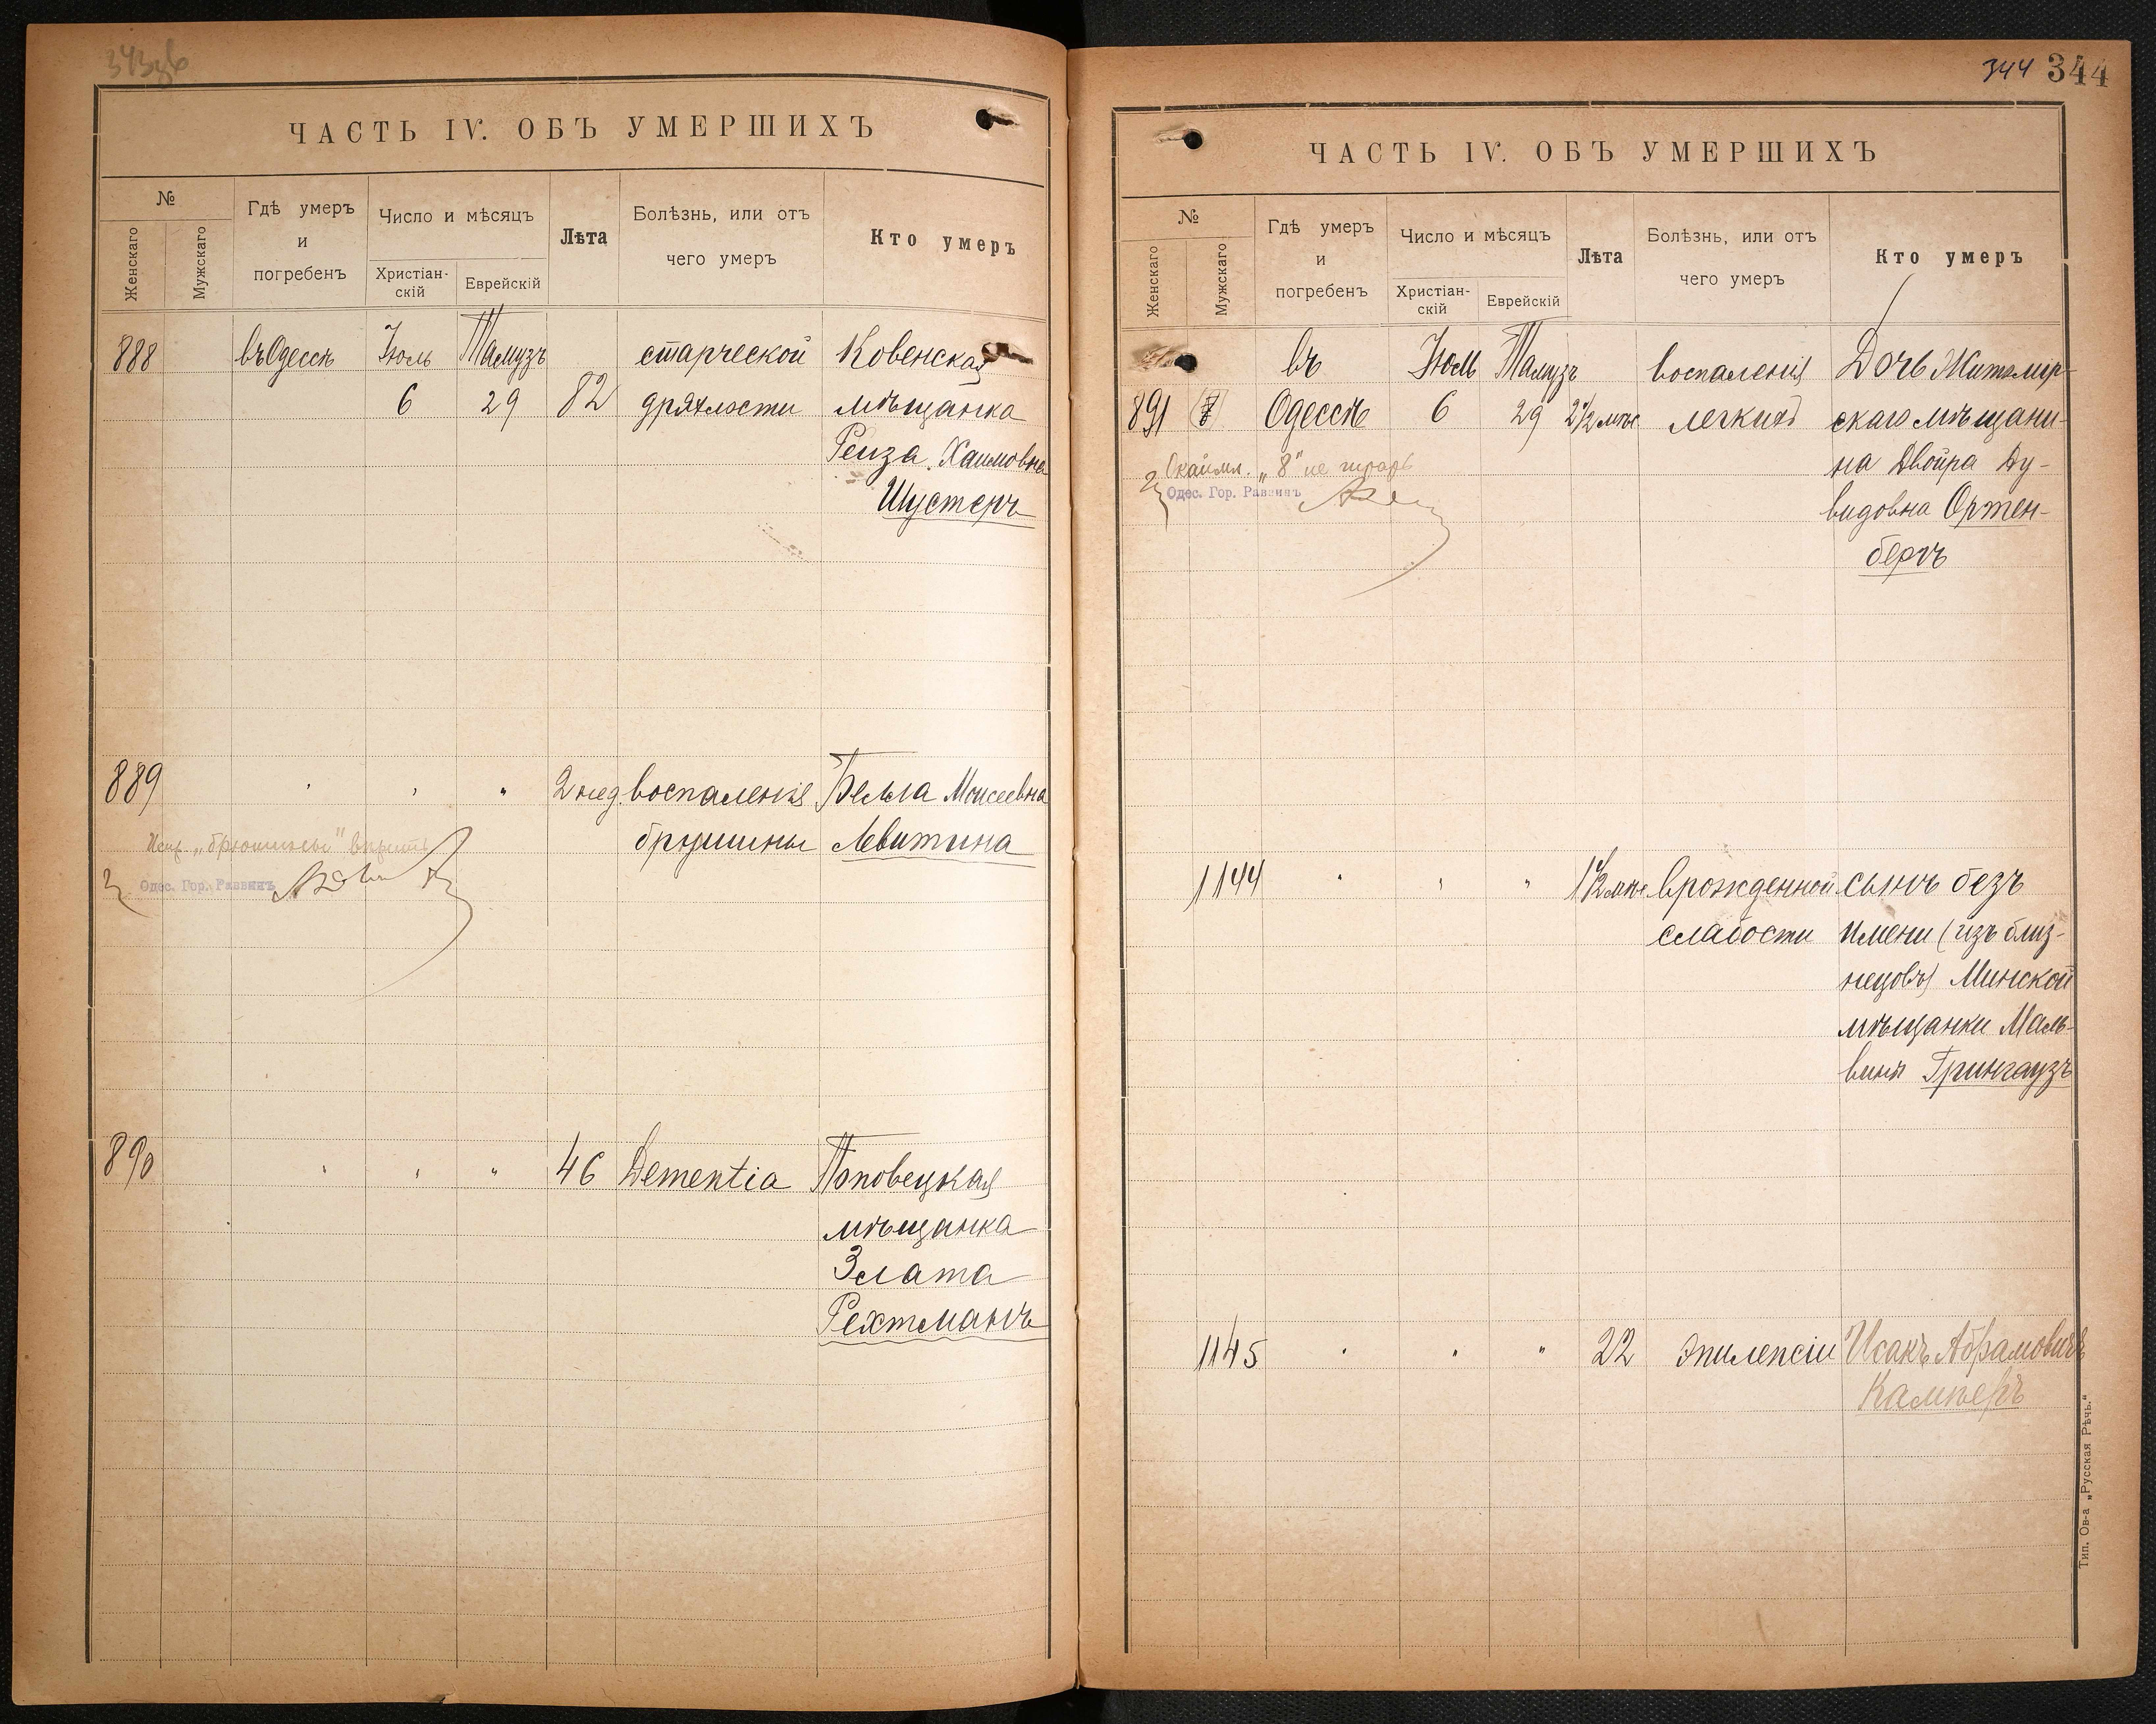 343об
ЧАСТЬ IV. ОБЪ УМЕРШИХЪ
№
Женскаго
Мужскаго
Гдѣ умеръ
и
погребенъ
Число и мѣсяцъ
Христіан-
скій
Еврейскій
Лѣта
Болѣзнь, или отъ
чего умеръ
Кто умеръ
888 въ Одессѣ Іюль Тамузъ старческой Ковенская
6 29 82 дряхлости мѣщанка
Рейза Хаимовна
Шустеръ
889 " " " 2 нед. воспаленіе Белла Моисеевна
брюшины Левитина
Испр. „брюшины" вѣрить
Одес. Гор. Раввинъ
890 " " " 46 Dementia Поповецкая
мѣщанка
Злата
Рехтманъ
344 344
ЧАСТЬ IV. ОБЪ УМЕРШИХЪ
№
Женскаго
Мужскаго
Гдѣ умеръ
и
погребенъ
Число и мѣсяцъ
Христіан-
скій
Еврейскій
Лѣта
Болѣзнь, или отъ
чего умеръ
Кто умеръ
въ Іюль Тамузъ воспаленія Дочь Житомір-
891 (8) Одессѣ 6 29 2½ мѣс легкихъ скаго мѣщани-
на Двойра Ду-
видовна Ортен-
бергъ
„8" не
Одес. Гор. Раввинъ
1144 " " " 1½ мѣс врожденной сынъ безъ
слабости имени (изъ близ-
нецовъ) Минской
мѣщанки Маль-
вины Грингаузъ
1145 " " " 22 эпилепсіи Исакъ Абрамовичъ
Камперъ
Тип. Ов-а „Русская Рѣчь."